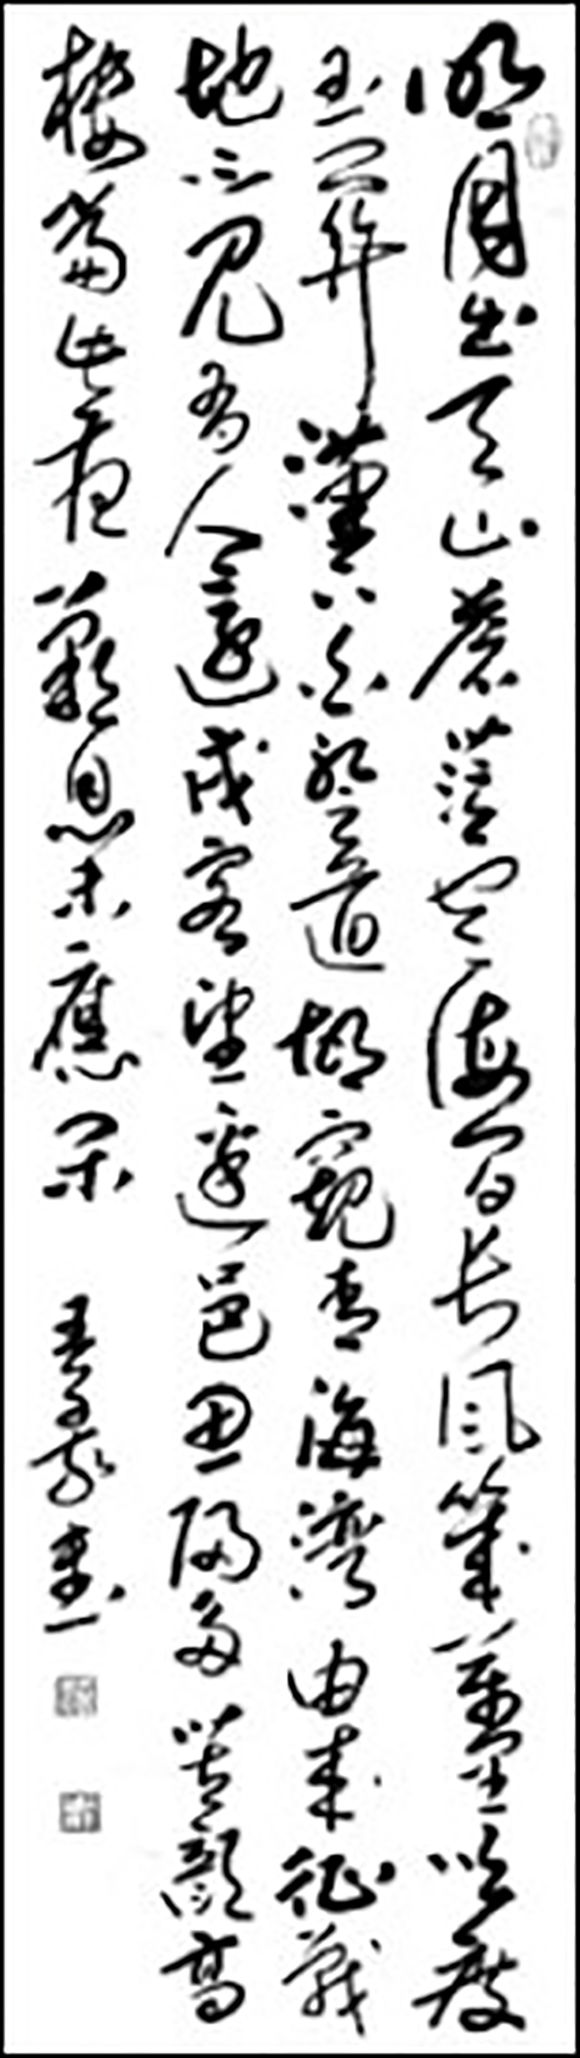 明月出天山蒼茫雲海間長風幾萬里吹度
玉門關漢下白登道胡窺青海灣由來征戰
地不見有人還戍客望邊邑思歸多苦顏高
樓當此夜歎息未應閑
書